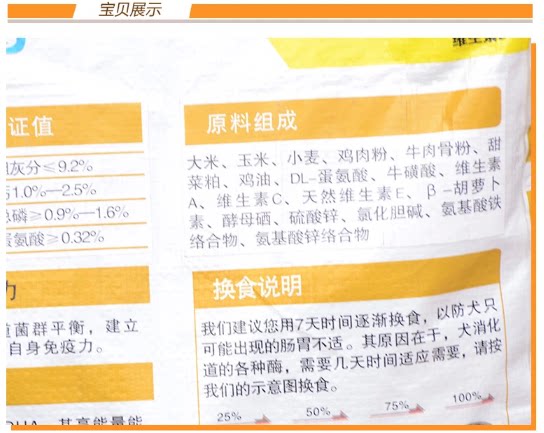 宝贝展示
维生素
证值
灰分≤9.2%
1.0%—2.5%
总磷≥0.9%—1.6%
蛋氨酸≥0.32%
力
菌群平衡，建立
自身免疫力。
其高能量能
原料组成
大米、玉米、小麦、鸡肉粉、牛肉骨粉、甜
菜粕、鸡油、DL-蛋氨酸、牛磺酸、维生素
A、维生素C、天然维生素E、β-胡萝卜
素、酵母硒、硫酸锌、氯化胆碱、氨基酸铁
络合物、氨基酸锌络合物
换食说明
我们建议您用7天时间逐渐换食，以防犬只
可能出现的肠胃不适。其原因在于，犬消化
道的各种酶，需要几天时间适应需要，请按
我们的示意图换食。
25% 50% 75% 100%